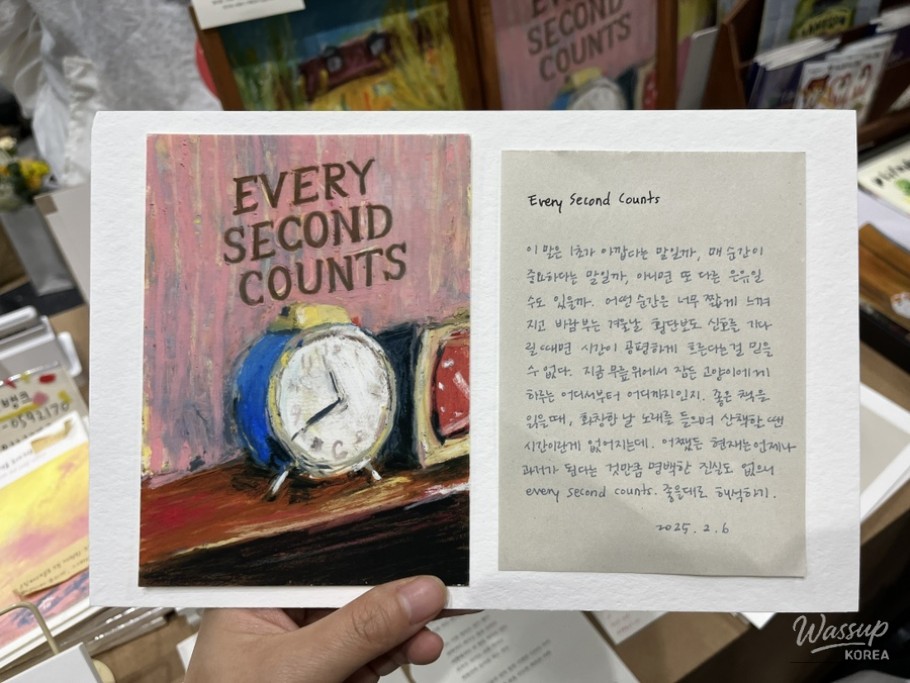 EVERY
SECOND
COUNTS
EVERY
SECOND
COUNTS
Every Second Counts
이 말은 1초가 아깝다는 말일까, 매 순간이
중요하다는 말일까, 아니면 또 다른 은유일
수도 있을까. 어떤 순간은 너무 짧게 느껴
지고 바람부는 겨울날 횡단보도 신호를 기다
릴 때면 시간이 공평하게 흐른다는걸 믿을
수 없다. 지금 무릎 위에서 잠든 고양이에게
하루는 어디서부터 어디까지인지. 좋은 책을
읽을 때, 화창한 날 노래를 들으며 산책할 땐
시간이란게 없어지는데. 어쨌든 현재는 언제나
과거가 된다는 것만큼 명백한 진실도 없으니
every second counts. 좋을대로 해석하기.
2025. 2. 6
Wassup
KOREA